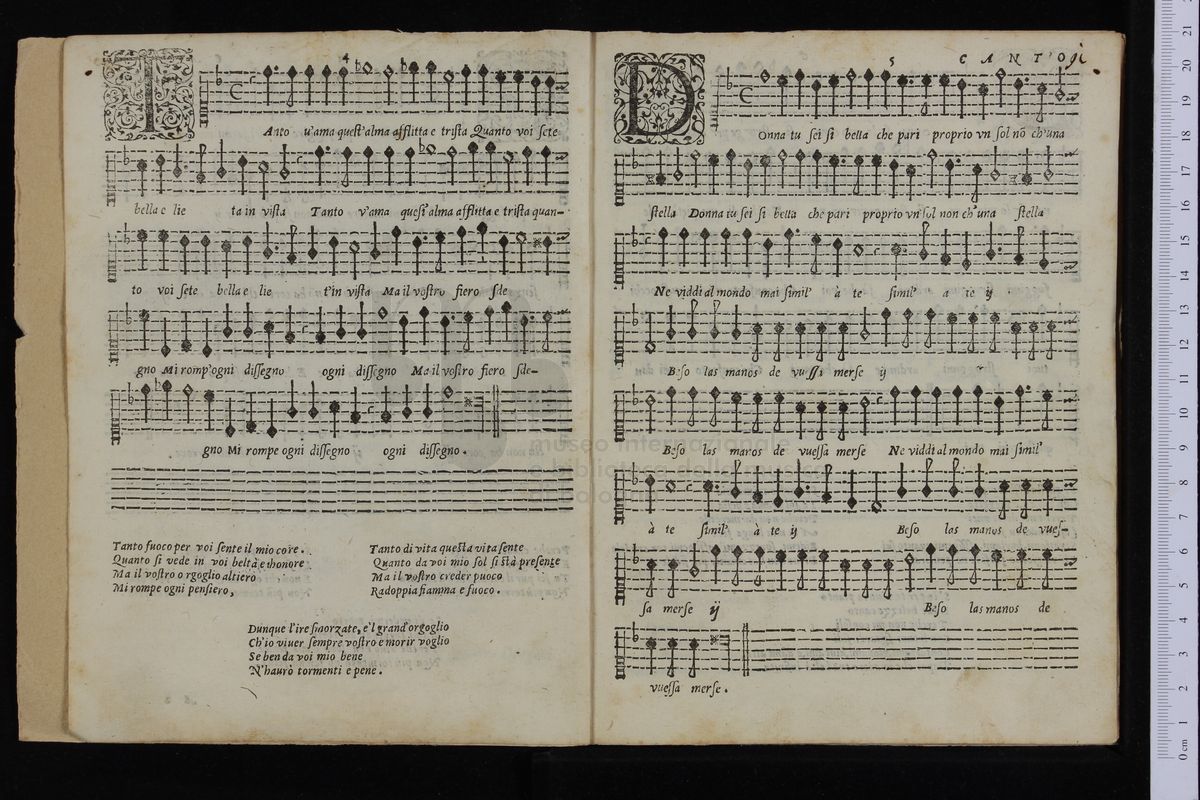 4
TAnto v'ama quest'alma afflitta e trista Quanto voi sete
bella e lie ta in vista Tanto v'ama quest'alma afflitta e trista quan-
to voi sete bella e lie t'in vista Ma il vostro fiero sde
gno Mi romp'ogni dissegno ogni dissegno Ma il vostro fiero sde-
gno Mi rompe ogni dissegno ogni dissegno.
Tanto fuoco per voi sente il mio core.
Quanto si vede in voi beltà e thonore
Ma il vostro orgoglio altiero
Mi rompe ogni pensiero,
Tanto di vita questa vita sente
Quanto da voi mio sol si stà presente
Ma il vostro creder puoco
Radoppia fiamma e fuoco.
Dunque l'ire smorzate, e'l grand'orgoglio
Ch'io viuer sempre vostro e morir voglio
Se ben da voi mio bene
N'haurò tormenti e pene.
5 CANTO
DOnna tu sei si bella che pari proprio vn sol nō ch'una
stella Donna tu sei si bella che pari proprio vn sol non ch'una stella
Ne viddi al mondo mai simil' à te simil' a te ij
Beso las manos de vuessa merse ij
Beso las manos de vuessa merse Ne viddi al mondo mai simil'
à te simil' à te ij Beso las manos de vues-
sa merse ij Beso las manos de
vuessa merse.
museo internazionale
e biblioteca della musica
di bologna
0 cm 1 2 3 4 5 6 7 8 9 10 11 12 13 14 15 16 17 18 19 20 21